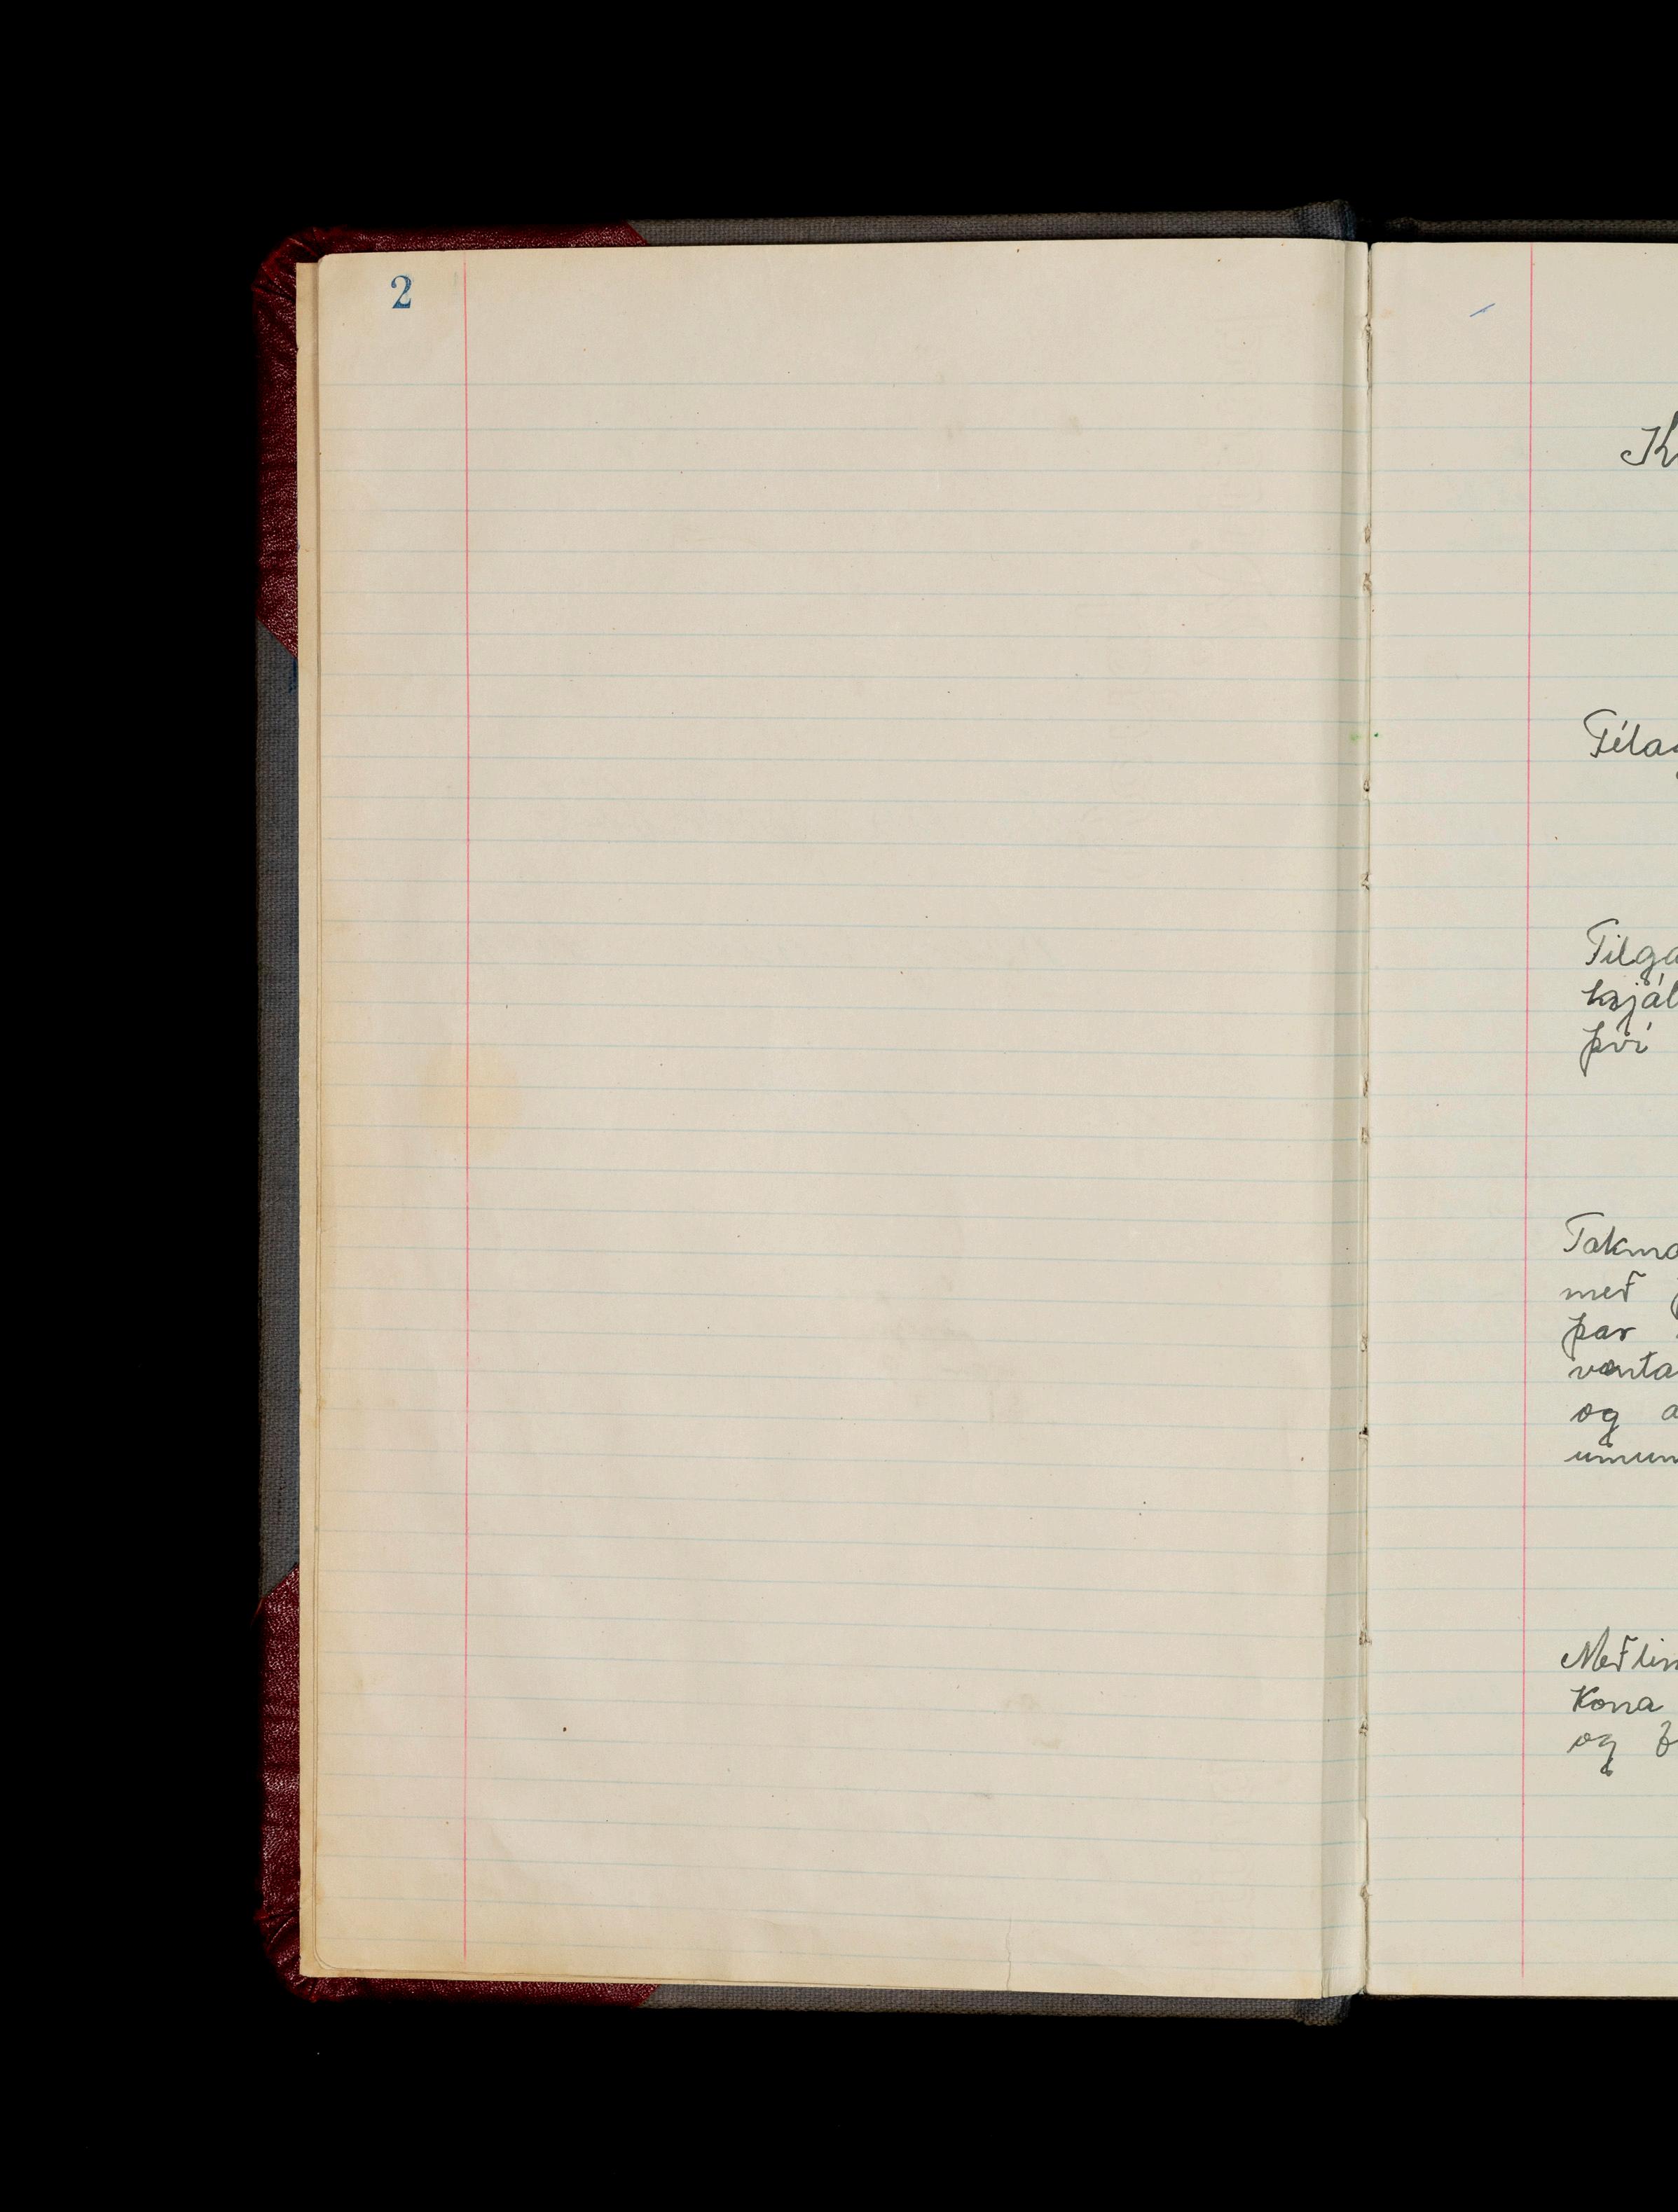 2
K
Félag
Tilga
hjál
því
Takma
með
þar
vænta
og a
umum
Meðlim
Kona
og f